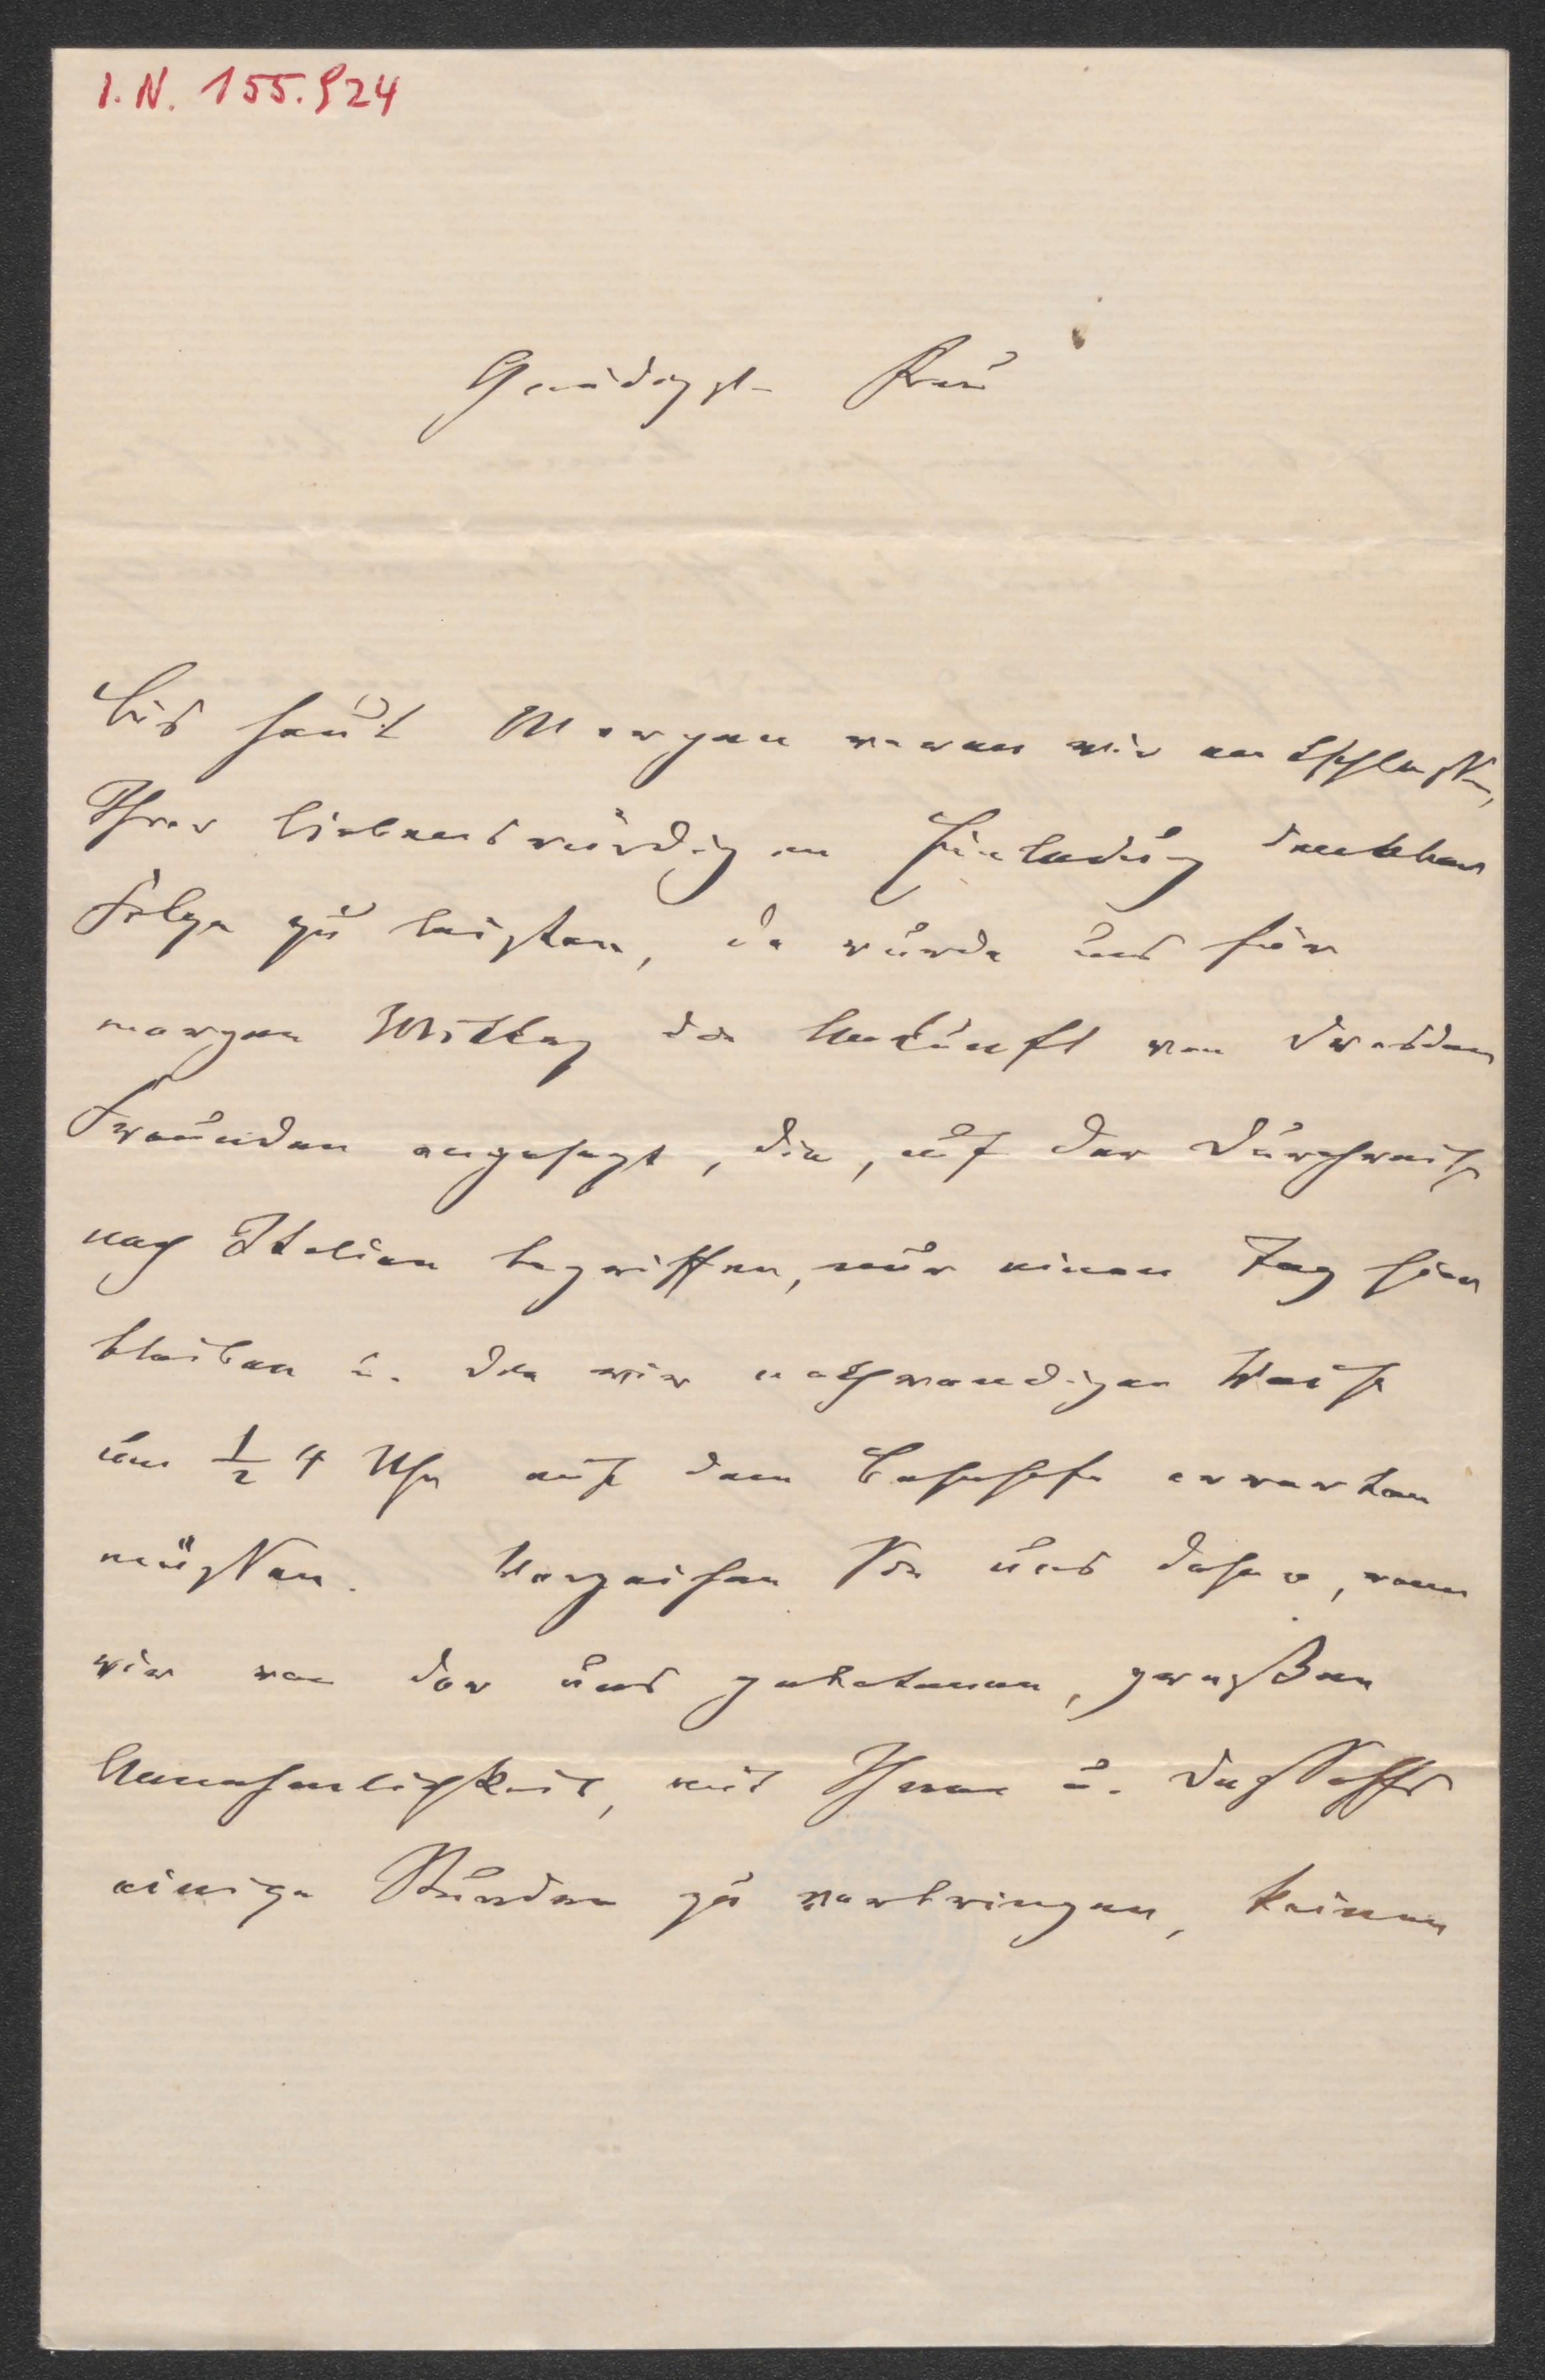 I.N. 155.924
Gnädigste Frau
Bis heut Morgen waren wir entschlossen,
Ihrer liebenswürdigen Einladung dankbar
Folge zu leisten, da wurde uns für
morgen Mittag die Ankunft von Dresdner
Freunden angesagt, die, auf der Durchreise
nach Italien begriffen, nur einen Tag hier
bleiben u. die wir nothwendiger Weise
um ½ 4 Uhr auf dem Bahnhofe erwarten
müssen. Verzeihen Sie uns daher, wenn
wir von der uns gebotenen, großen
Annehmlichkeit, mit Ihnen u.
einige Stunden zu verbringen, keinen